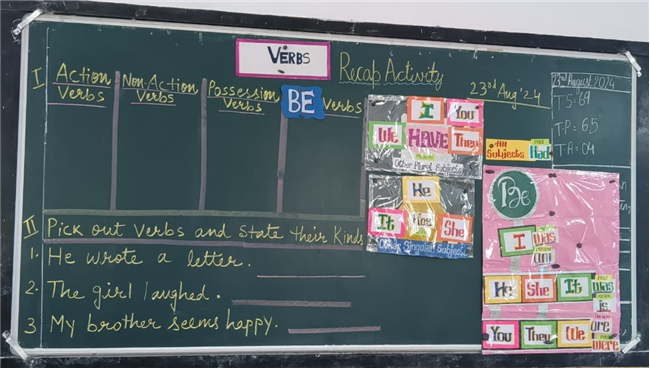 VERBS
Recap Activity
23rd Aug '24
I Action Verbs
Non-Action Verbs
Possession Verbs
BE Verbs
II Pick out verbs and state their kinds
1. He wrote a letter.
2. The girl laughed.
3 My brother seems happy.
I You
We HAVE They
Other Plural Subjects
He
It Has She
Other Singular Subjects
All Subjects Had
Be
I was
am
He She It was
is
You They We are
were
23rd August 2024
T.S: 69
T.P = 65
T.A = 04